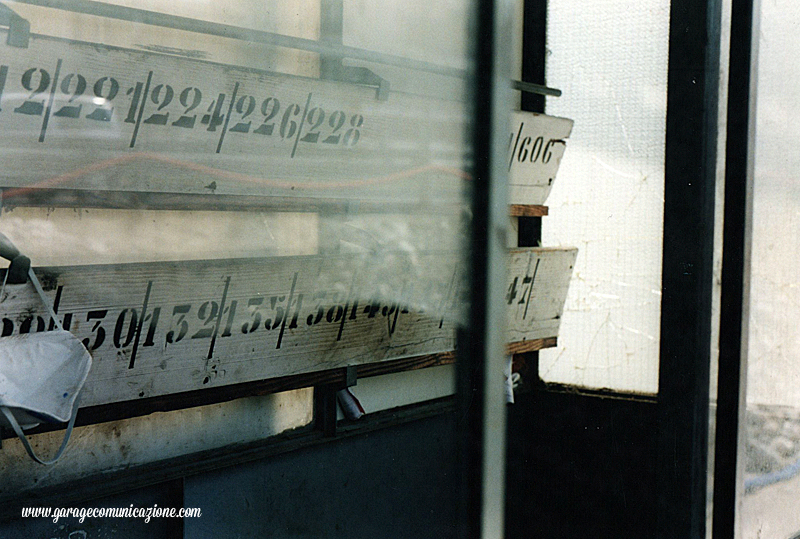 2/221/224/226/228
/606
130/132/135/136/
47/
www.garagecomunicazione.com